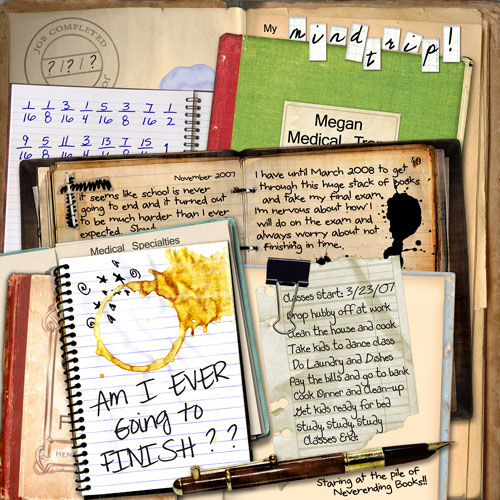 JOB COMPLETED
? / ? / ?
My mind trip!
1/16 1/8 3/16 1/4 5/16 3/8 7/16 1/2
9/16 5/8 11/16 3/4 13/16 7/8 15/16 1
Megan
Medical
November 2007
it seems like school is never
going to end and it turned out
to be much harder than I ever
expected.
I have until March 2008 to get
through this huge stack of books
and take my final exam.
I'm nervous about how I
will do on the exam and
always worry about not
finishing in time.
Medical Specialties
AM I EVER
Going to
FINISH??
Classes Start: 3/23/07
Drop hubby off at work
Clean the house and cook
Take kids to dance class
Do Laundry and Dishes
Pay the bills and go to bank
Cook Dinner and Clean-up
Get kids ready for bed
study, study, study
Classes End:
Staring at the pile of
Neverending Books!!